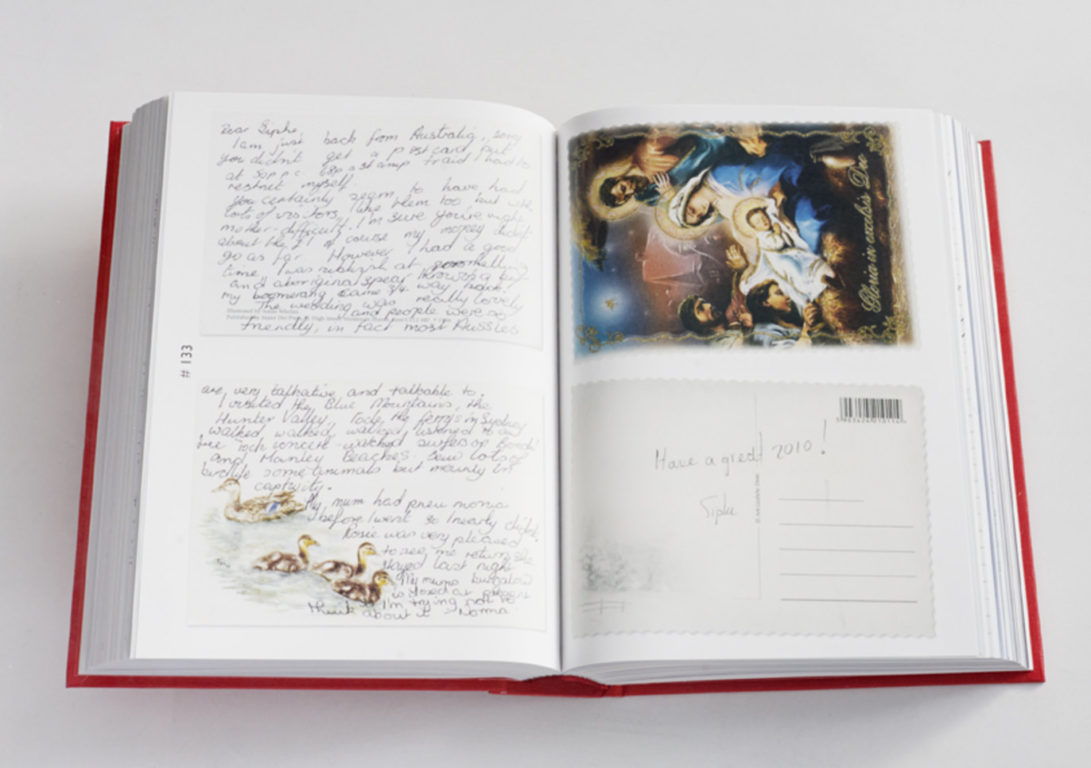 Dear Siphe,
I am just back from Australia, sorry
you didn't get a postcard, but
at 50p p.c. 68p a stamp I had to
restrict myself.
You certainly seem to have had
lots of visitors, I like them too but with
mother difficult. I'm sure you're right
about the. Of course my money didn't
go as far. However, I had a good
time. I was rubbish at
and aboriginal spear throwing but
my boomerang came 3/4 way back.
The wedding was really lovely
Illustrated by
and people were so
friendly, in fact most Aussies
# 133
are very talkative and talkable to.
I visited the Blue Mountains, the
Hunter Valley, rode the ferrys in Sydney
walked, walked, walked, listened to a
free rock concert watched surfers on Bondi
and Manley Beaches. Saw lots of
birdlife some animals but mainly in
captivity.
My mum had pneumonia
before I went so I nearly didn't.
Rosie was very pleased
to see me return, she
stayed last night
My mums bungalow
is closed at present
I'm trying not to
think about it Norma
Gloria in excelsis Deo
Have a great 2010!
Siphe